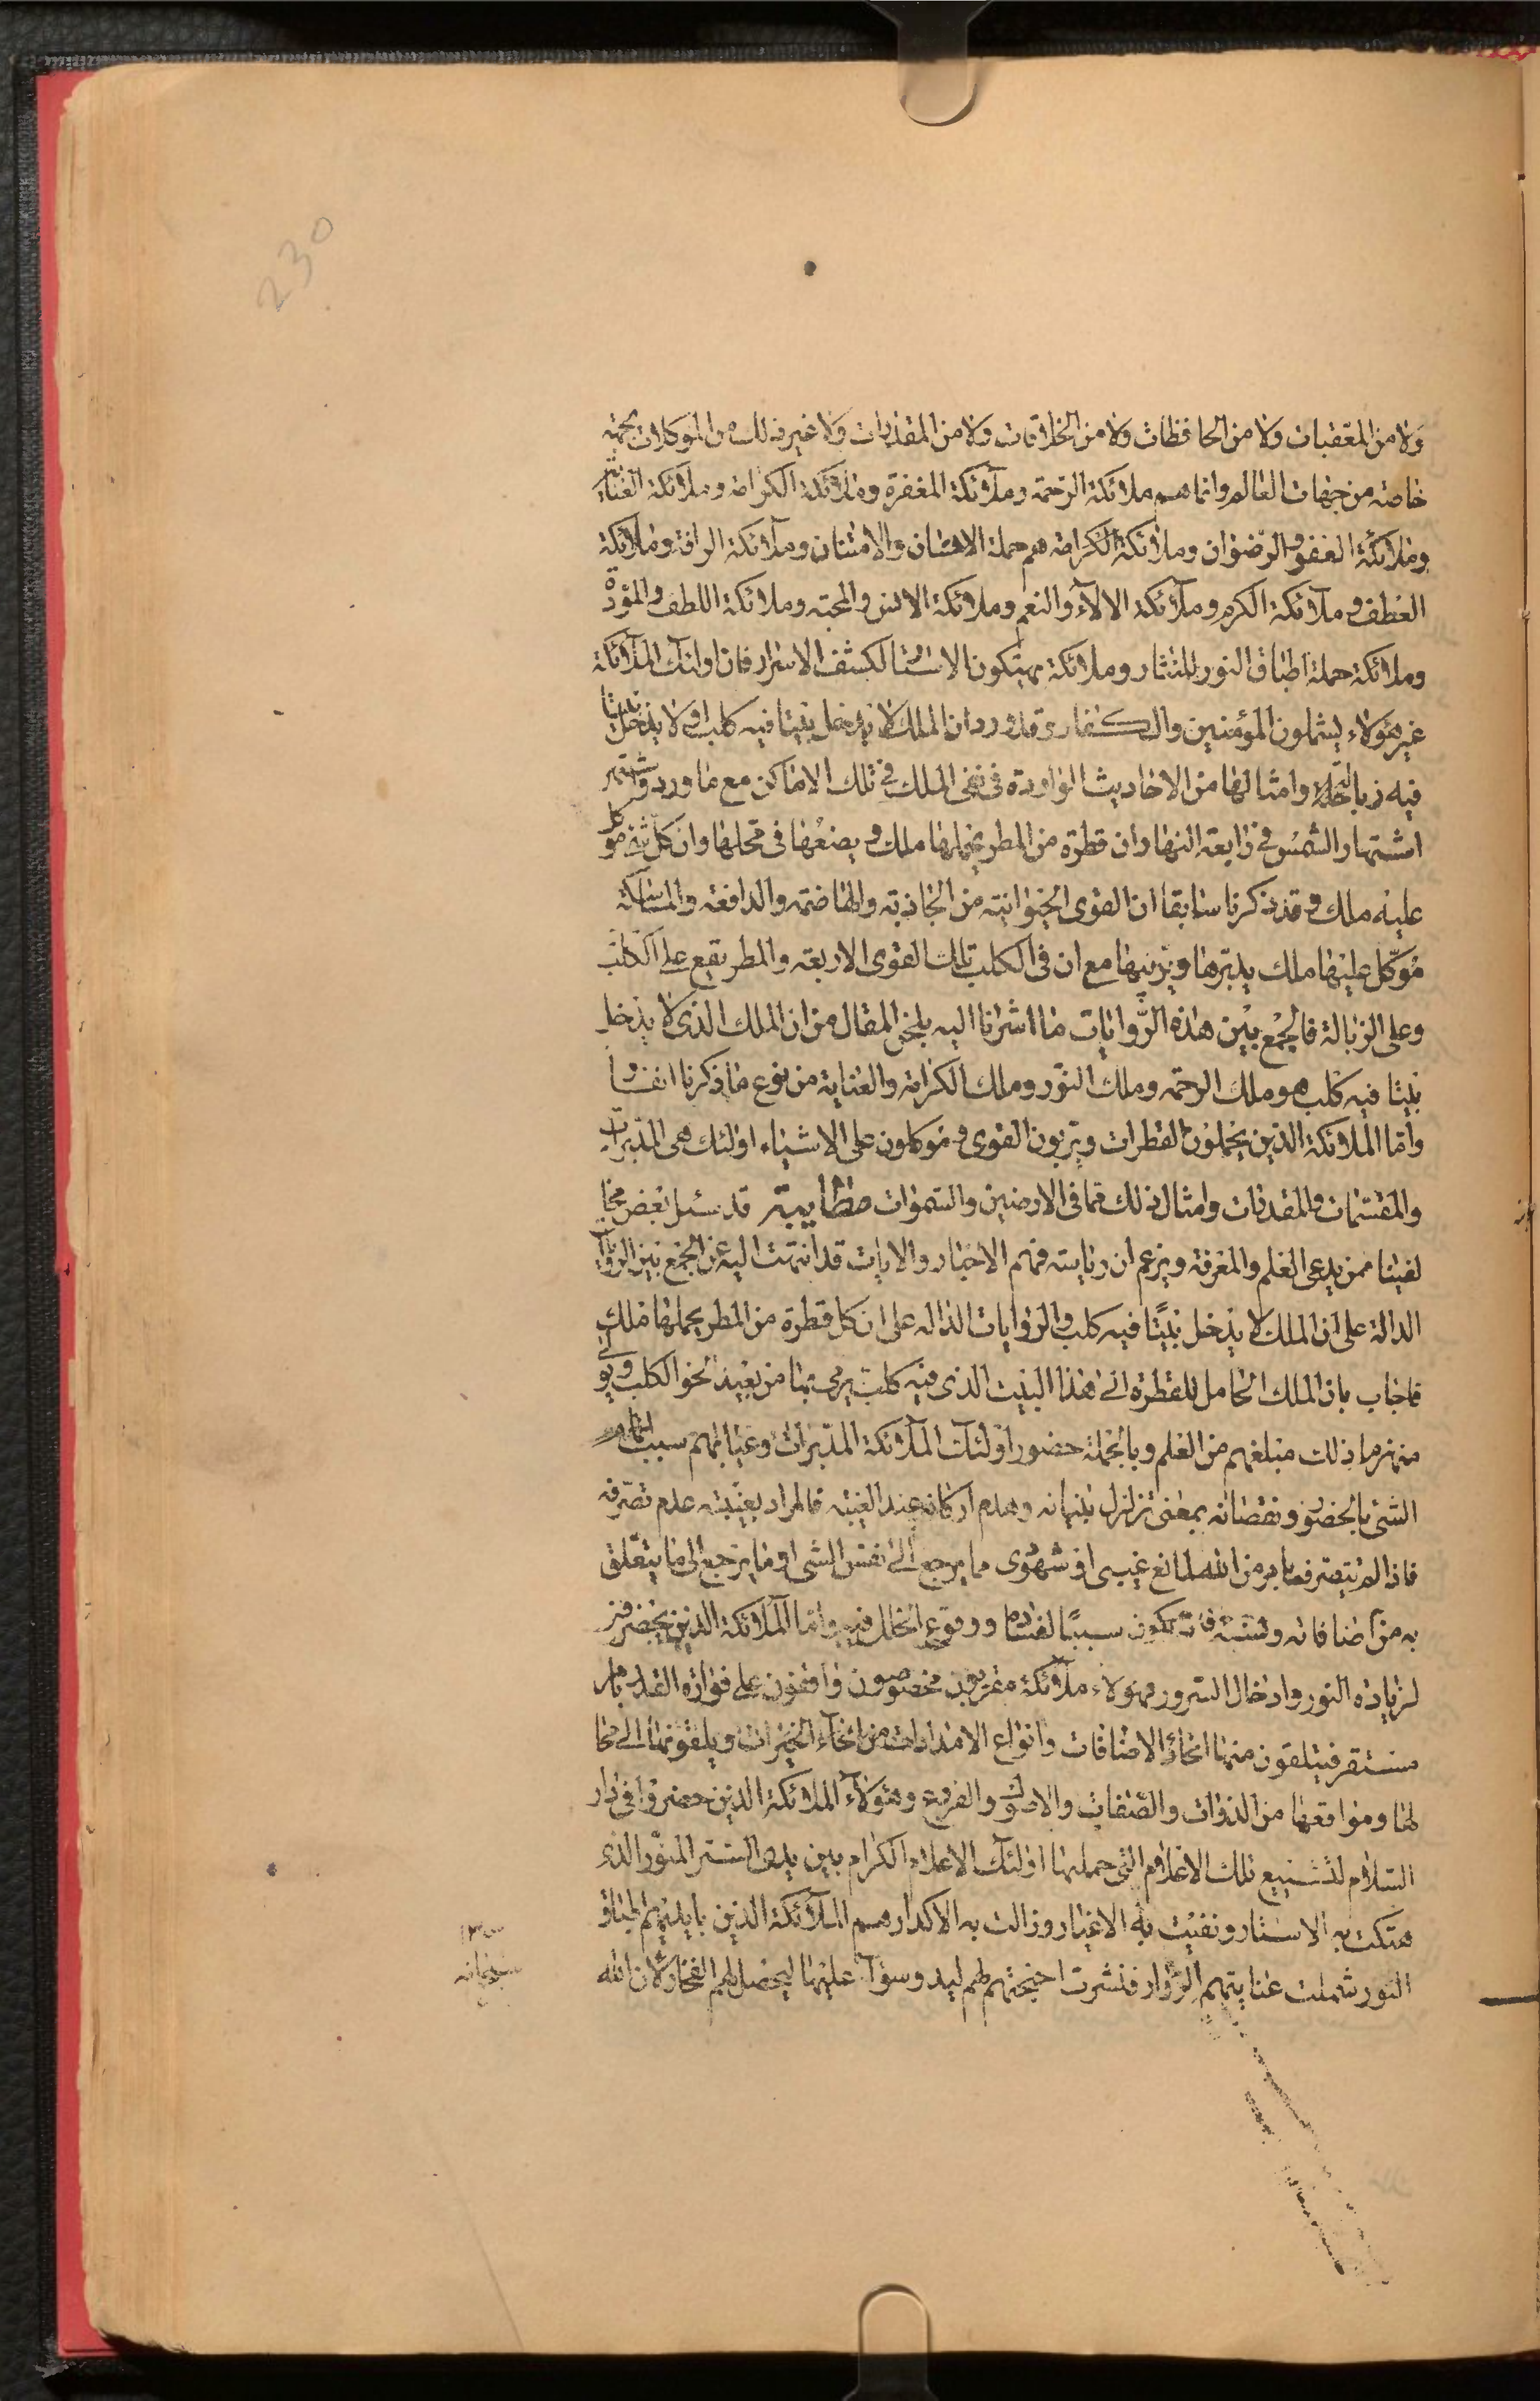 230
ولا من المعقبات ولا من الحافظات ولا من الخلاقات ولا من المقدرات ولا غير ذلك من الموكلات بجهة
خاصة من جهات العالم وانما هم ملائكة الرحمة وملآئكة المغفرة وملائكة الكرامة وملآئكة العناية
وملآئكة العفو والرّضوان وملائكة الكرامة هم حملة الاحسان والامتنان وملآئكة الرافة وملآئكة
العطف وملآئكة الكرم وملآئكة الالآء والنعم وملائكة الانس والمحبة وملائكة اللطف والمودّة
وملائكة حملة اطباق النور للنثار وملائكة يهتكون الاستار لكشف الاسرار فان اولئك الملآئكة
غير هؤلاء يشملون المؤمنين والكفار وقد ورد ان الملك لا يدخل بيتا فيه كلب او لا يدخل بيتا
فيه زبالة وامثالها من الاحاديث الواردة فى نفى الملك فى تلك الاماكن مع ما ورد واشتهر
اشتهار الشمس فى رابعة النهار ان قطرة من المطر يحملها ملك ويضعُها فى محلها وان كلّ شئ موكل
عليه ملك وقد ذكرنا سابقا ان القوى الحيوانية من الجاذبة والهاضمة والدافعة والماسكة
مُوكّل عليها ملك يدبّرها ويربيها مع ان فى الكلب تلك القوى الاربعة والمطر يقع على الكلب
وعلى الزبالة فالجمع بين هذه الرّوايات ما اشرنا اليه بلحن المقال من ان الملك الذى لا يدخل
بيتا فيه كلب هو ملك الرحمة وملك النّور وملك الكرامة والعناية من نوع ما ذكرنا انفا
وأما الملائكة الذين يحملون القطرات ويربّون القوى وموكلون على الاشياء اولئك هى المدبّرات
والمقسّمات والمقدرات وامثال ذلك مما فى الارضين والسّموات مطايبة قد سئل بعض
لقينا ممن يدعى العلم والمعرفة ويزعم ان رياسة فهم الاخبار والايات قد انتهت اليه عن الجمع بين الروايات
الدالة على ان الملك لا يدخل بيتًا فيه كلب والروايات الدالة على ان كل قطرة من المطر يحملها ملك
فاجاب بان الملك الحامل للقطرة الى هذا البيت الذى فيه كلب يرمى بها من بعيد نحو الكلب ويولّى
منهزما ذلك مبلغهم من العلم وبالجملة حضور اولئك الملآئكة المدّبرات وغيابهم سبب
الشئ بالحضور ونقصانه بمعنى تزلزل بنيانه وهدم اركانه عند الغيبة فالمراد بغيبته عدم تصرّفه
فاذا لم يتصرف بامر من الله لمانع غيبى او شهودى مما يرجع الى نفس الشئ او ما يرجع الى ما يتعلق
به من اضافاته ونسبه فانه تكون سببًا لفساده ووقوع الخلل فيه واما الملائكة الذين يحضرون
لزيادة النور وادخال السّرور فهؤلاء ملآئكة مقربون مخصوصون واقفون على فوارة القدر بامر
مستقر فيتلقون منها انحآء الاضافات وانواع الامدادات من انحآء الخيرات ويلقونها الى محا
لها ومواقعها من الذوات والصّفات والاصول والفروع وهؤلآء الملائكة الذين حضروا فى دار
السّلام لتشييع تلك الاعلام التى حملها اولئك الاعلام الكرام بين يدى الستر المنوّر الذى
هتكت به الاستار ونفيت به الاغيار وزالت به الاكدار هم الملآئكة الذين بايديهم اطباق
النور شملت عنايتهم الزّوار فنشرت اجنحتهم لهم ليدوسوا عليها ليحصل لهم الفخار لان الله
سبحانه